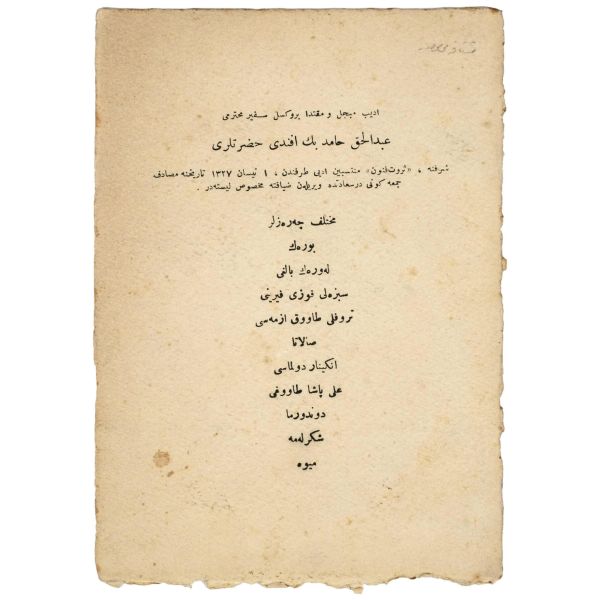 اديب مبجل و مقتدا بروكسل سفير محترمى
عبدالحق حامد بك افندى حضرتلرى
شرفنه ، «ثروت‌فنون» منتسبين ادبى طرفندن ، ١ نيسان ١٣٢٧ تاريخنه مصادف
جمعه كونى درسعادتده ويريلن ضيافته مخصوص ليسته‌در .
مختلف چه‌ره‌زلر
بوره‌ك
له‌وره‌ك بالغى
سبزه‌لى قوزى فيرينى
تروفلى طاووق ازمه‌سى
صالاتا
انكينار دولماسى
على پاشا طاووغى
دوندورما
شكرله‌مه
ميوه